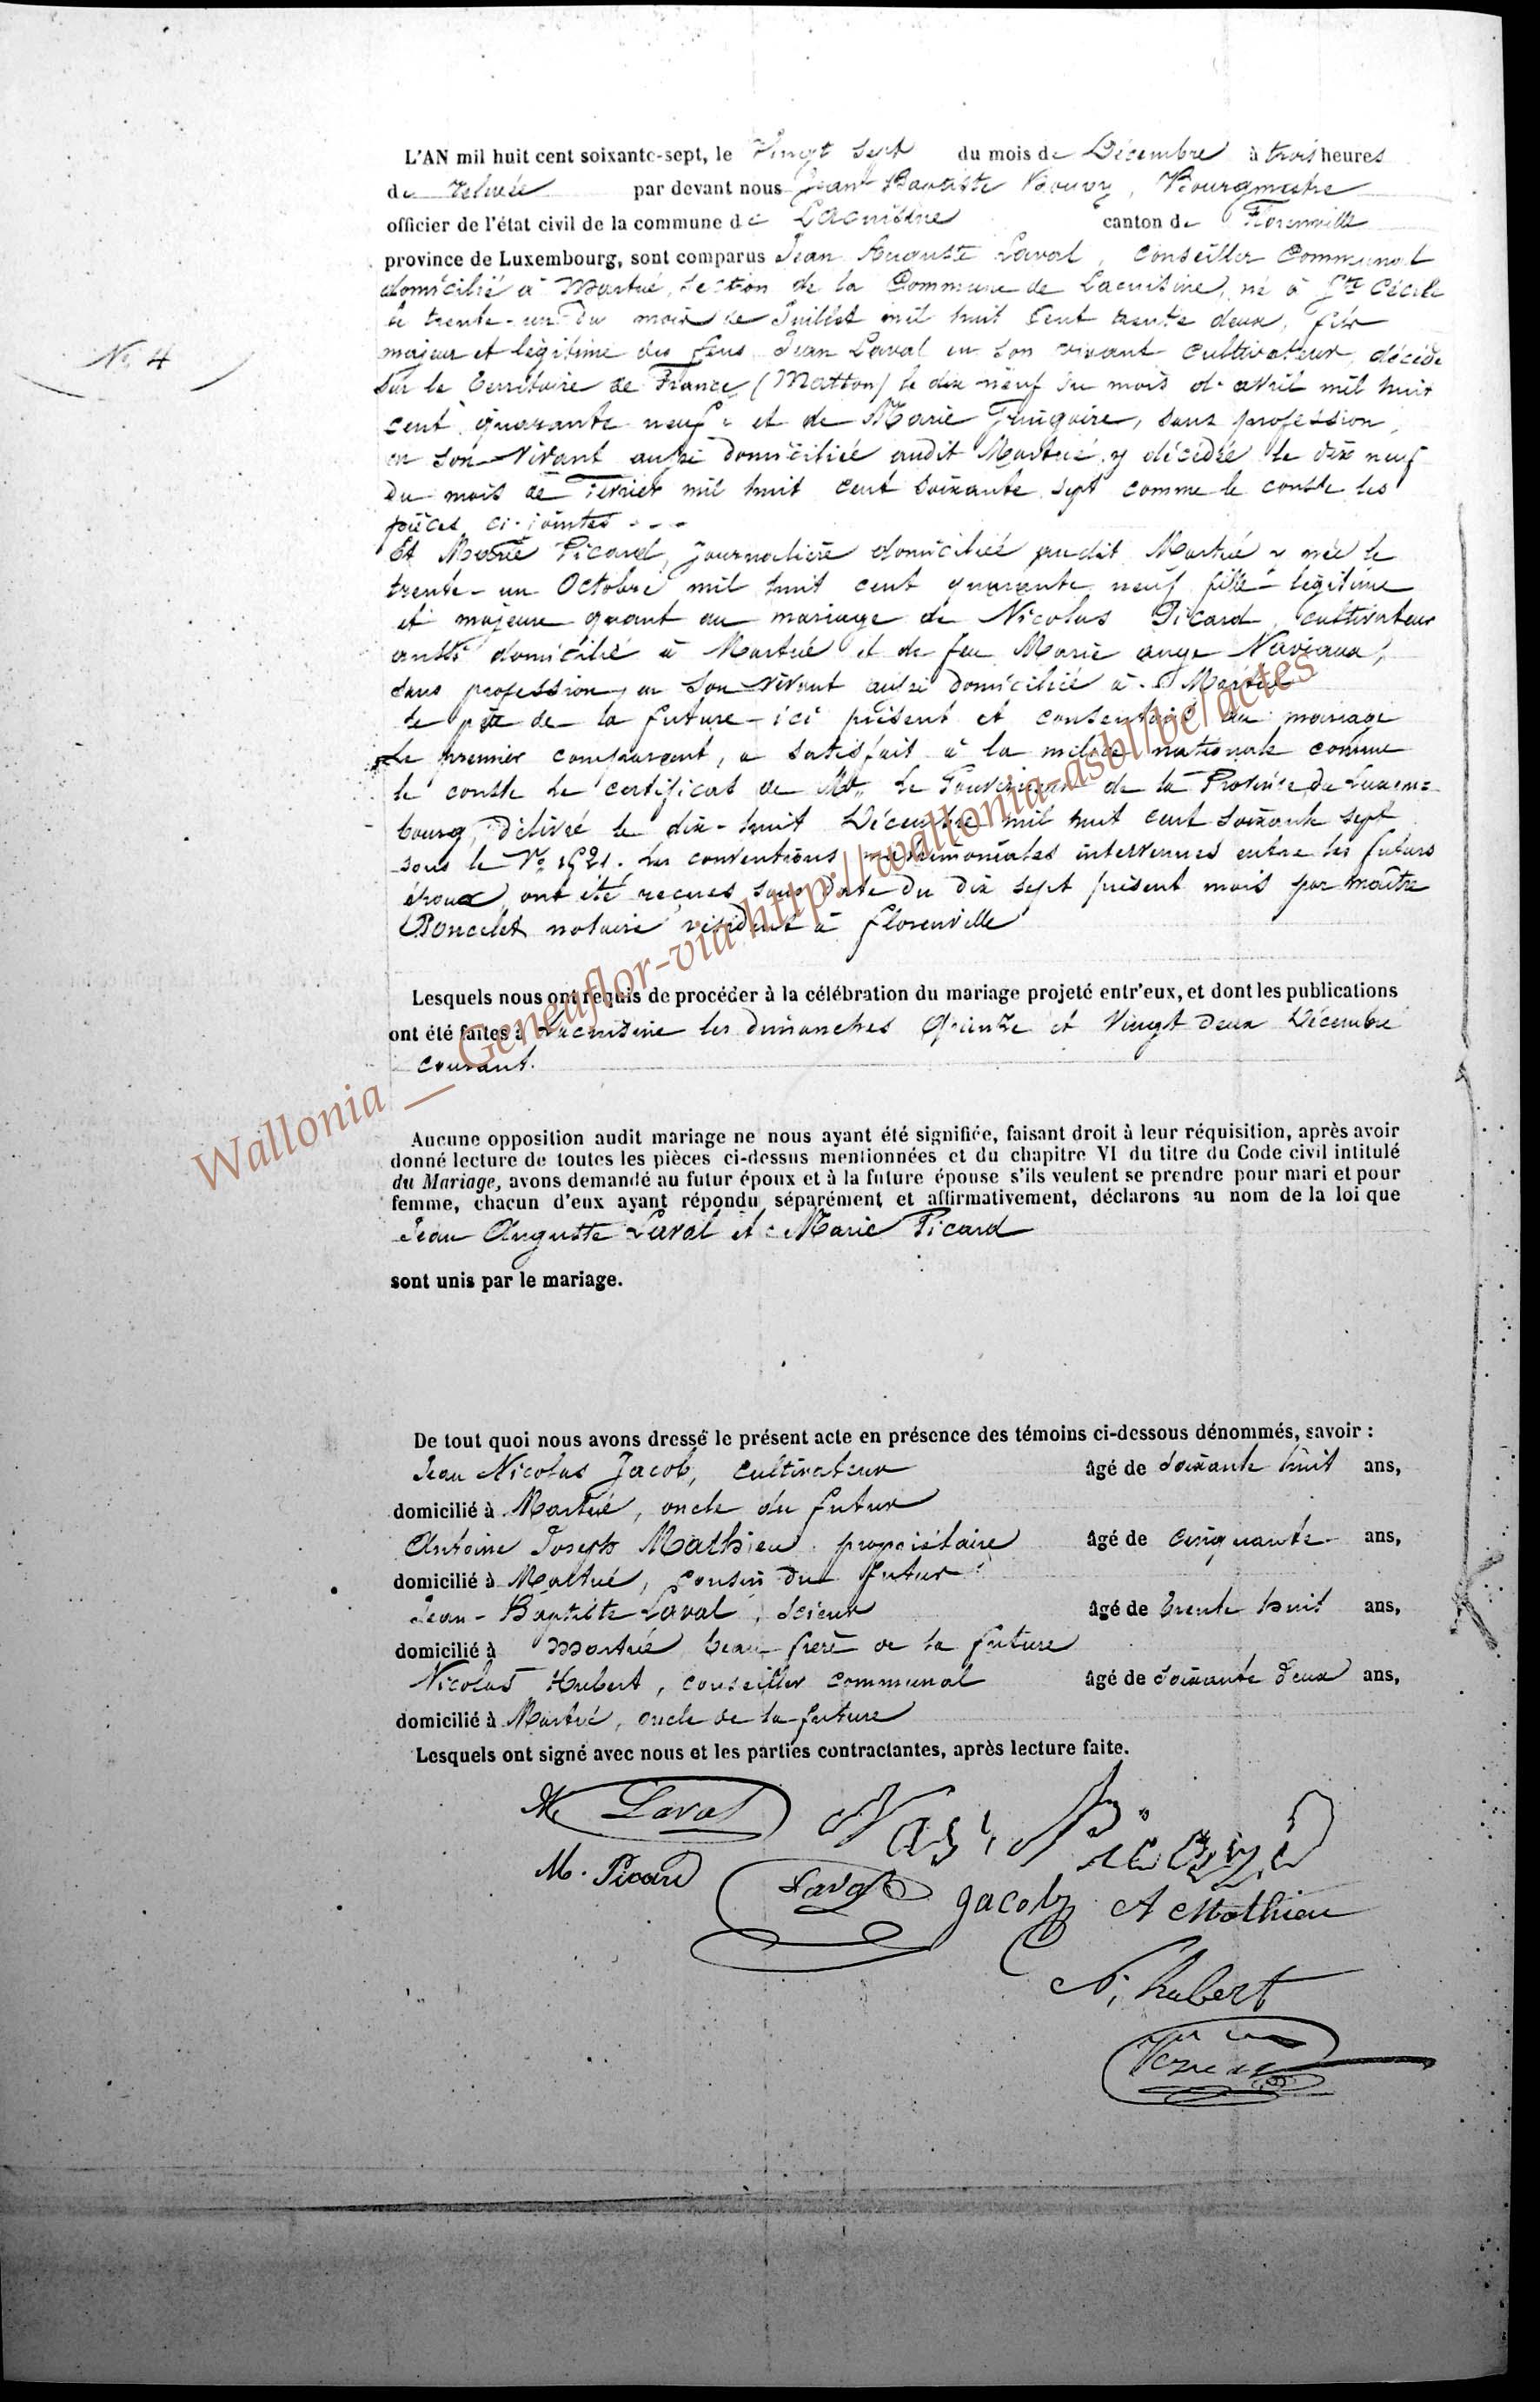 L'AN mil huit cent soixante-sept, le Vingt Sept du mois de Décembre à trois heures
de relevée par devant nous Jean Baptiste Bourgmestre
officier de l'état civil de la commune de Lacuisine canton de Florenville
province de Luxembourg, sont comparus Jean Auguste Laval, Conseiller Communal
domicilié à Martué, Section de la Commune de Lacuisine, né à Ste Cécile
le trente-un du mois de Juillet mil huit Cent trente deux, fils
N° 4
majeur et légitime des feus Jean Laval en son vivant cultivateur, décédé
sur le territoire de France (Matton) le dix neuf du mois d'avril mil huit
cent quarante neuf et de Marie, sans profession,
en son vivant aussi domiciliée audit Martué, y décédée le dix neuf
du mois de Février mil huit cent soixante sept comme le conste les
pièces ci-jointes - - -
Et Marie Picard, Journalière domiciliée audit Martué y née le
trente-un Octobre mil huit cent quarante neuf fille légitime
et majeure quant au mariage de Nicolas Picard, cultivateur
aussi domicilié à Martué et de feu Marie ange
sans profession, en son vivant aussi domiciliée à Martué
le père de la future ici présent et consentant au mariage
Le premier comparant, a satisfait à la milice nationale comme
le conste le certificat de Mr. le Gouverneur de la Province de Luxem=
bourg, délivré le dix-huit Décembre mil huit cent soixante sept
sous le N° 1521. Les conventions matrimoniales intervenues entre les futurs
époux ont été reçues sous date du dix sept présent mois par maître
Poncelet notaire résidant à Florenville
Lesquels nous ont requis de procéder à la célébration du mariage projeté entr'eux, et dont les publications
ont été faites à Lacuisine les dimanches Quinze et Vingt deux Décembre
courant.
Wallonia __ Geneaflor-via http://wallonia-asbl/be/actes
Aucune opposition audit mariage ne nous ayant été signifiée, faisant droit à leur réquisition, après avoir
donné lecture de toutes les pièces ci-dessus mentionnées et du chapitre VI du titre du Code civil intitulé
du Mariage, avons demandé au futur époux et à la future épouse s'ils veulent se prendre pour mari et pour
femme, chacun d'eux ayant répondu séparément et affirmativement, déclarons au nom de la loi que
Jean Auguste Laval et Marie Picard
sont unis par le mariage.
De tout quoi nous avons dressé le présent acte en présence des témoins ci-dessous dénommés, savoir :
Jean Nicolas Jacob, cultivateur âgé de soixante huit ans,
domicilié à Martué, oncle du futur
Antoine Joseph Mathieu propriétaire âgé de cinquante ans,
domicilié à Martué, cousin du futur
Jean-Baptiste Laval, Scieur âgé de trente huit ans,
domicilié à Martué beau frère de la future
Nicolas Hubert, conseiller communal âgé de soixante deux ans,
domicilié à Martué, oncle de la future
Lesquels ont signé avec nous et les parties contractantes, après lecture faite.
Laval Picard
M. Picard Laval Jacob A Mathieu
N. hubert